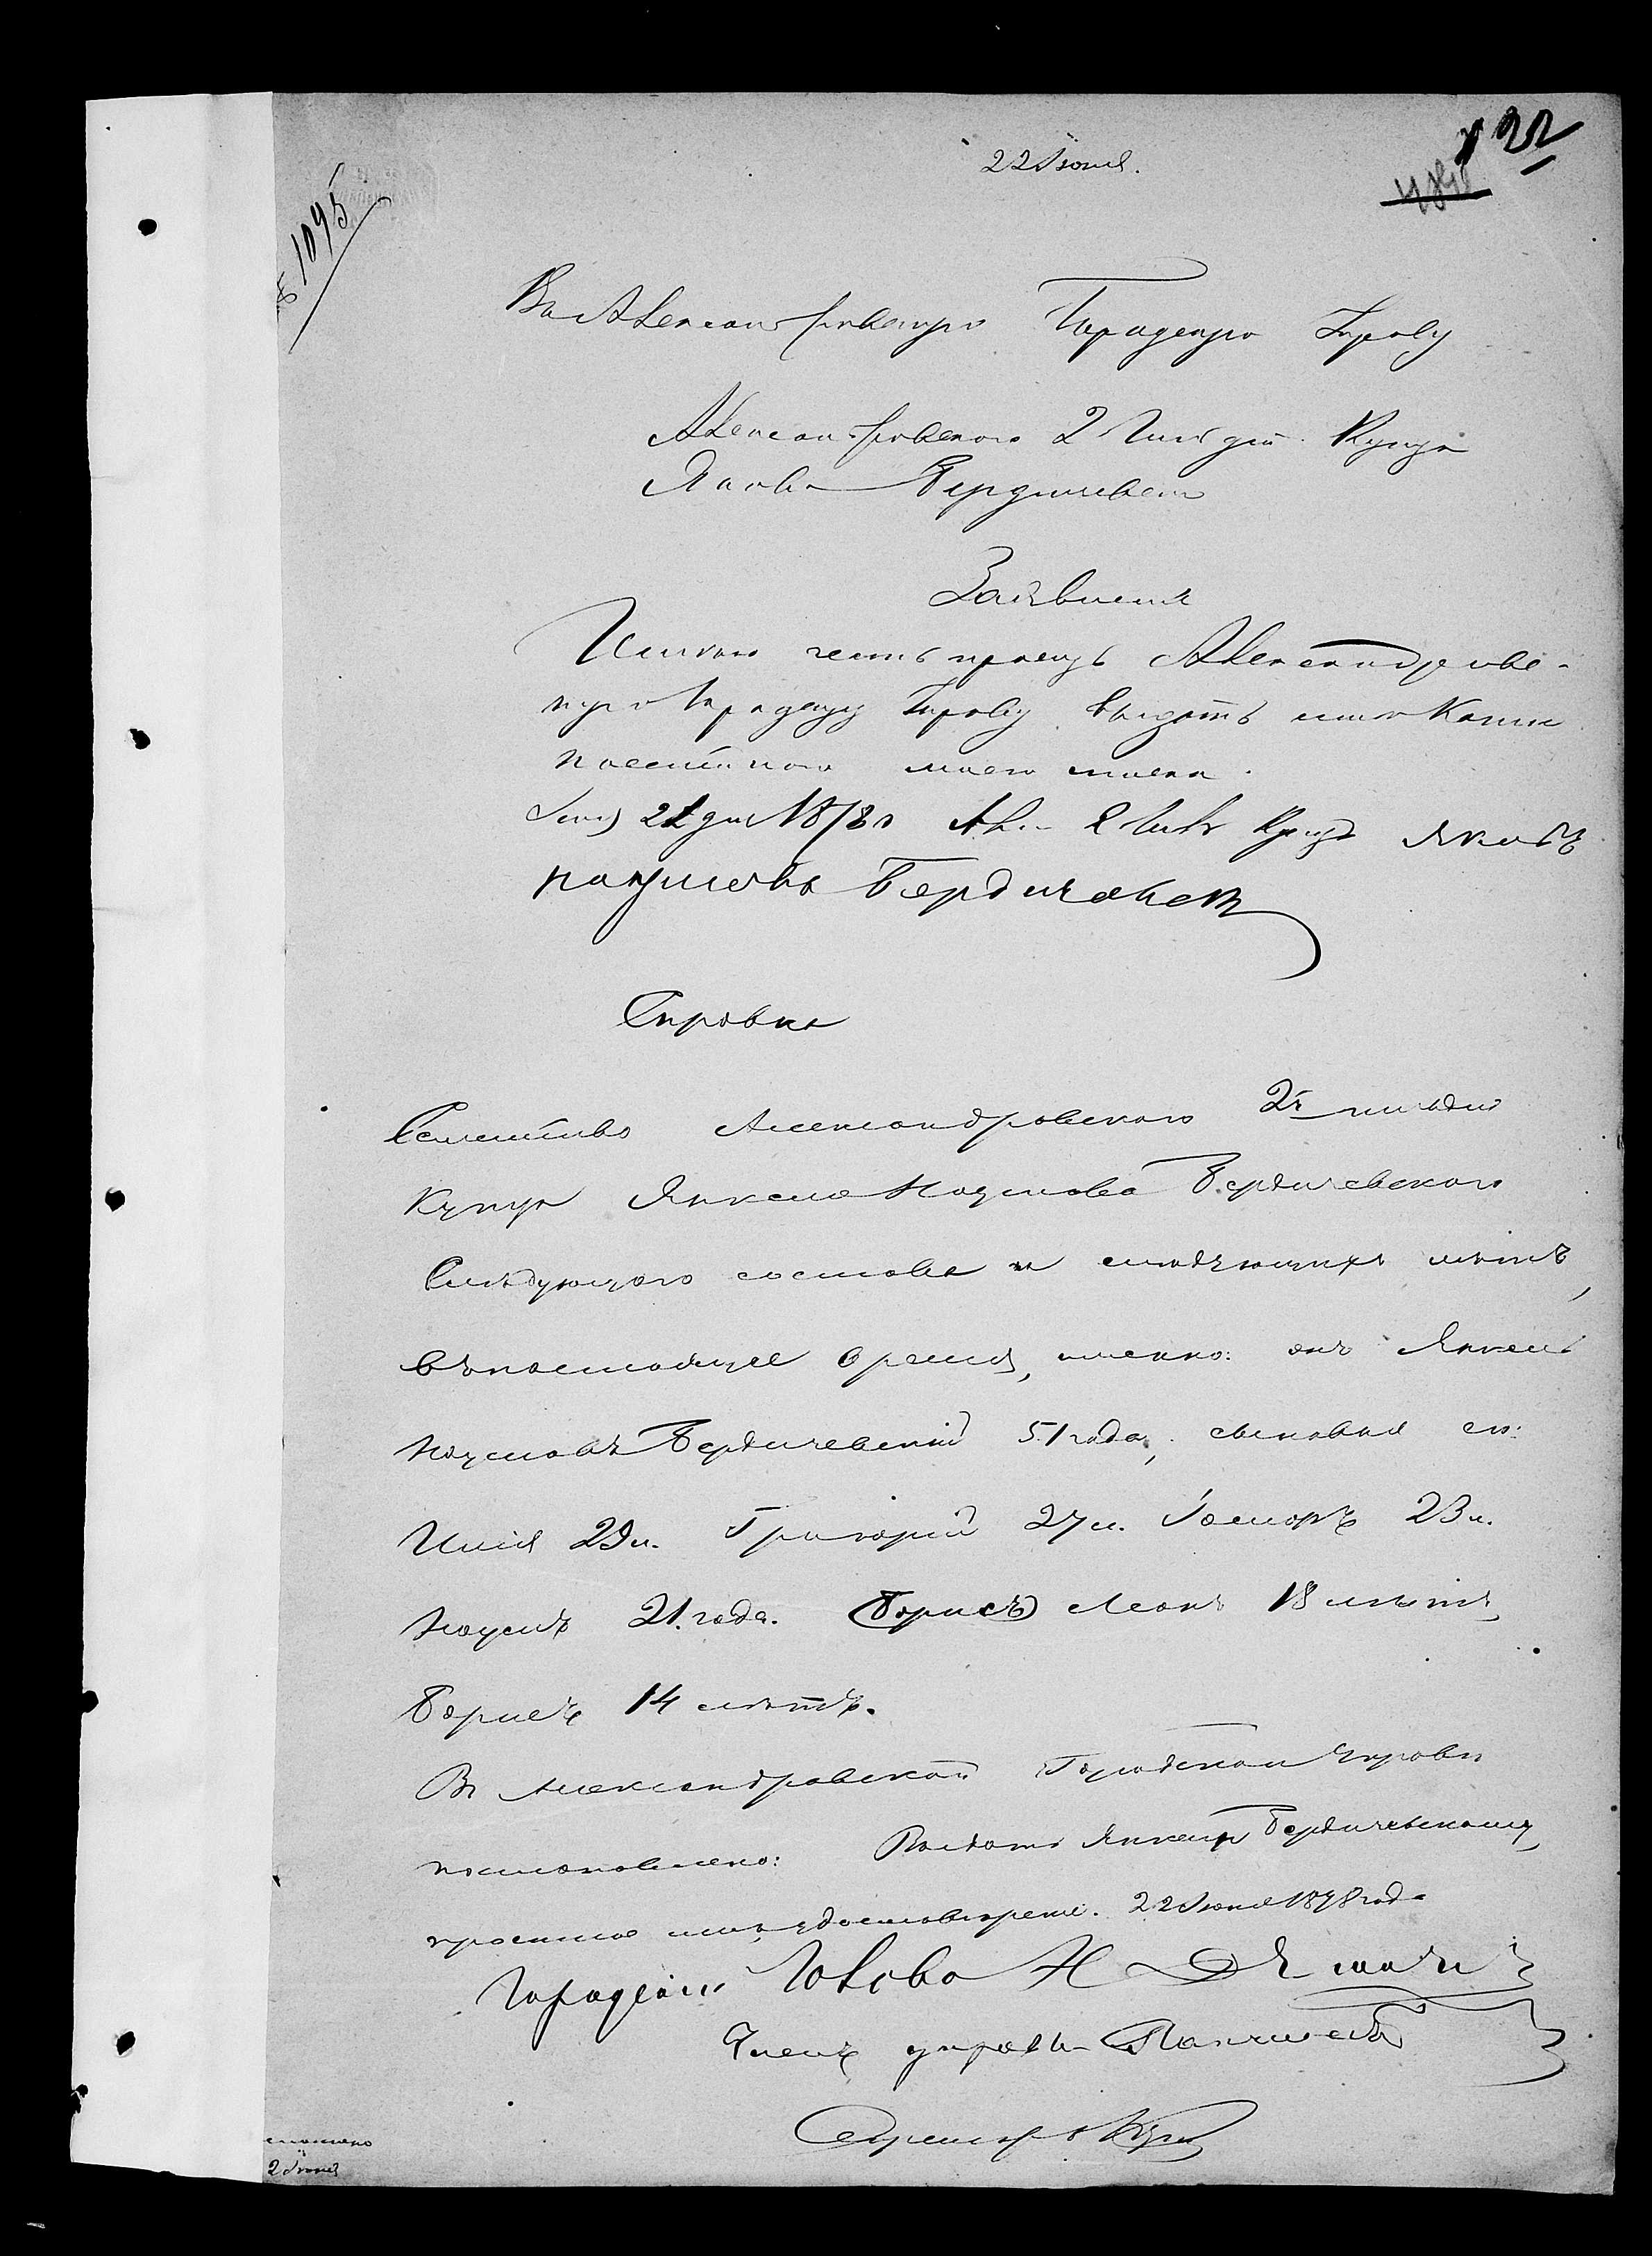 22 Іюня.
22
№ 1095
Въ Александровскую Городскую Управу
Александровскаго 2 Гильдіи Купца
Якова Бердичевскаго
Заявленіе
Имѣю честь просить Александровс-
кую Городскую Управу выдать
моего
Іюня 22 дня 1878 Ал. 2 Гил. Купецъ Яковъ
Наумовъ Бердичевскій
Справка
Семейство Александровскаго 2й гильдіи
Купца Янкеля Наумова Бердичевскаго
слѣдующаго состава и слѣдующихъ лѣтъ,
въ настоящее время, именно: онъ Янкель
Наумовъ Бердичевскій 51 года, сыновья его:
Илія 29 л. Григорій 27 л. 23 л.
Наумъ 21 года. (Борисъ) Леонъ 18 лѣтъ,
Борисъ 14 лѣтъ.
Въ Александровской Городской Управѣ
постановлено: Выдать Янкелю Бердичевскому
просимое имъ удостовѣреніе. 22 Іюня 1878 года
Городской Голова Н
Членъ управы
Секретарь
2 Іюня